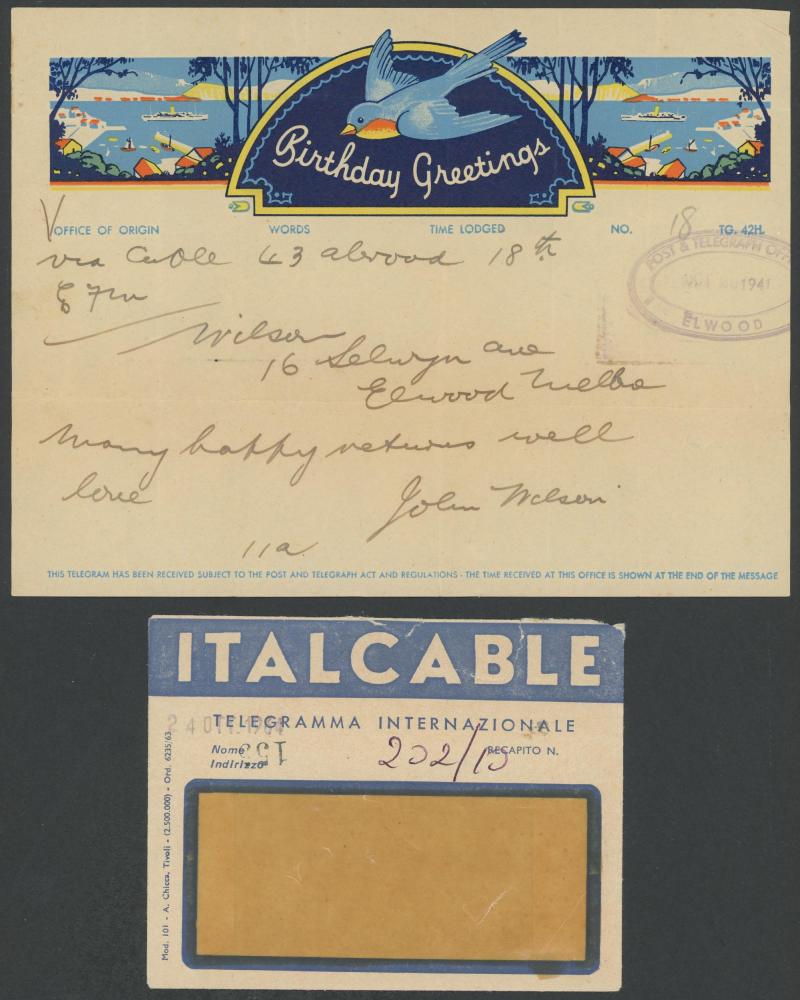 Birthday Greetings
OFFICE OF ORIGIN WORDS TIME LODGED NO. 18 TG. 42H.
via Cable 43 18th
POST & TELEGRAPH OFF
1941
ELWOOD
Wilson
16 Selwyn ave
Elwood Melbo
Many happy returns well
love John Wilson
11a
THIS TELEGRAM HAS BEEN RECEIVED SUBJECT TO THE POST AND TELEGRAPH ACT AND REGULATIONS - THE TIME RECEIVED AT THIS OFFICE IS SHOWN AT THE END OF THE MESSAGE
ITALCABLE
TELEGRAMMA INTERNAZIONALE
24 OTT.
Nome 202/15 RECAPITO N.
Indirizzo
153
Mod. 101 - A. Chicca, Tivoli - (2.500.000) - Ord. 6235/63